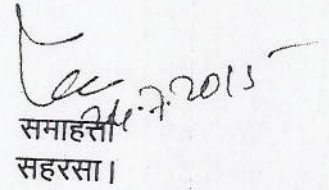 24.7.2015
समाहर्त्ता
सहरसा।